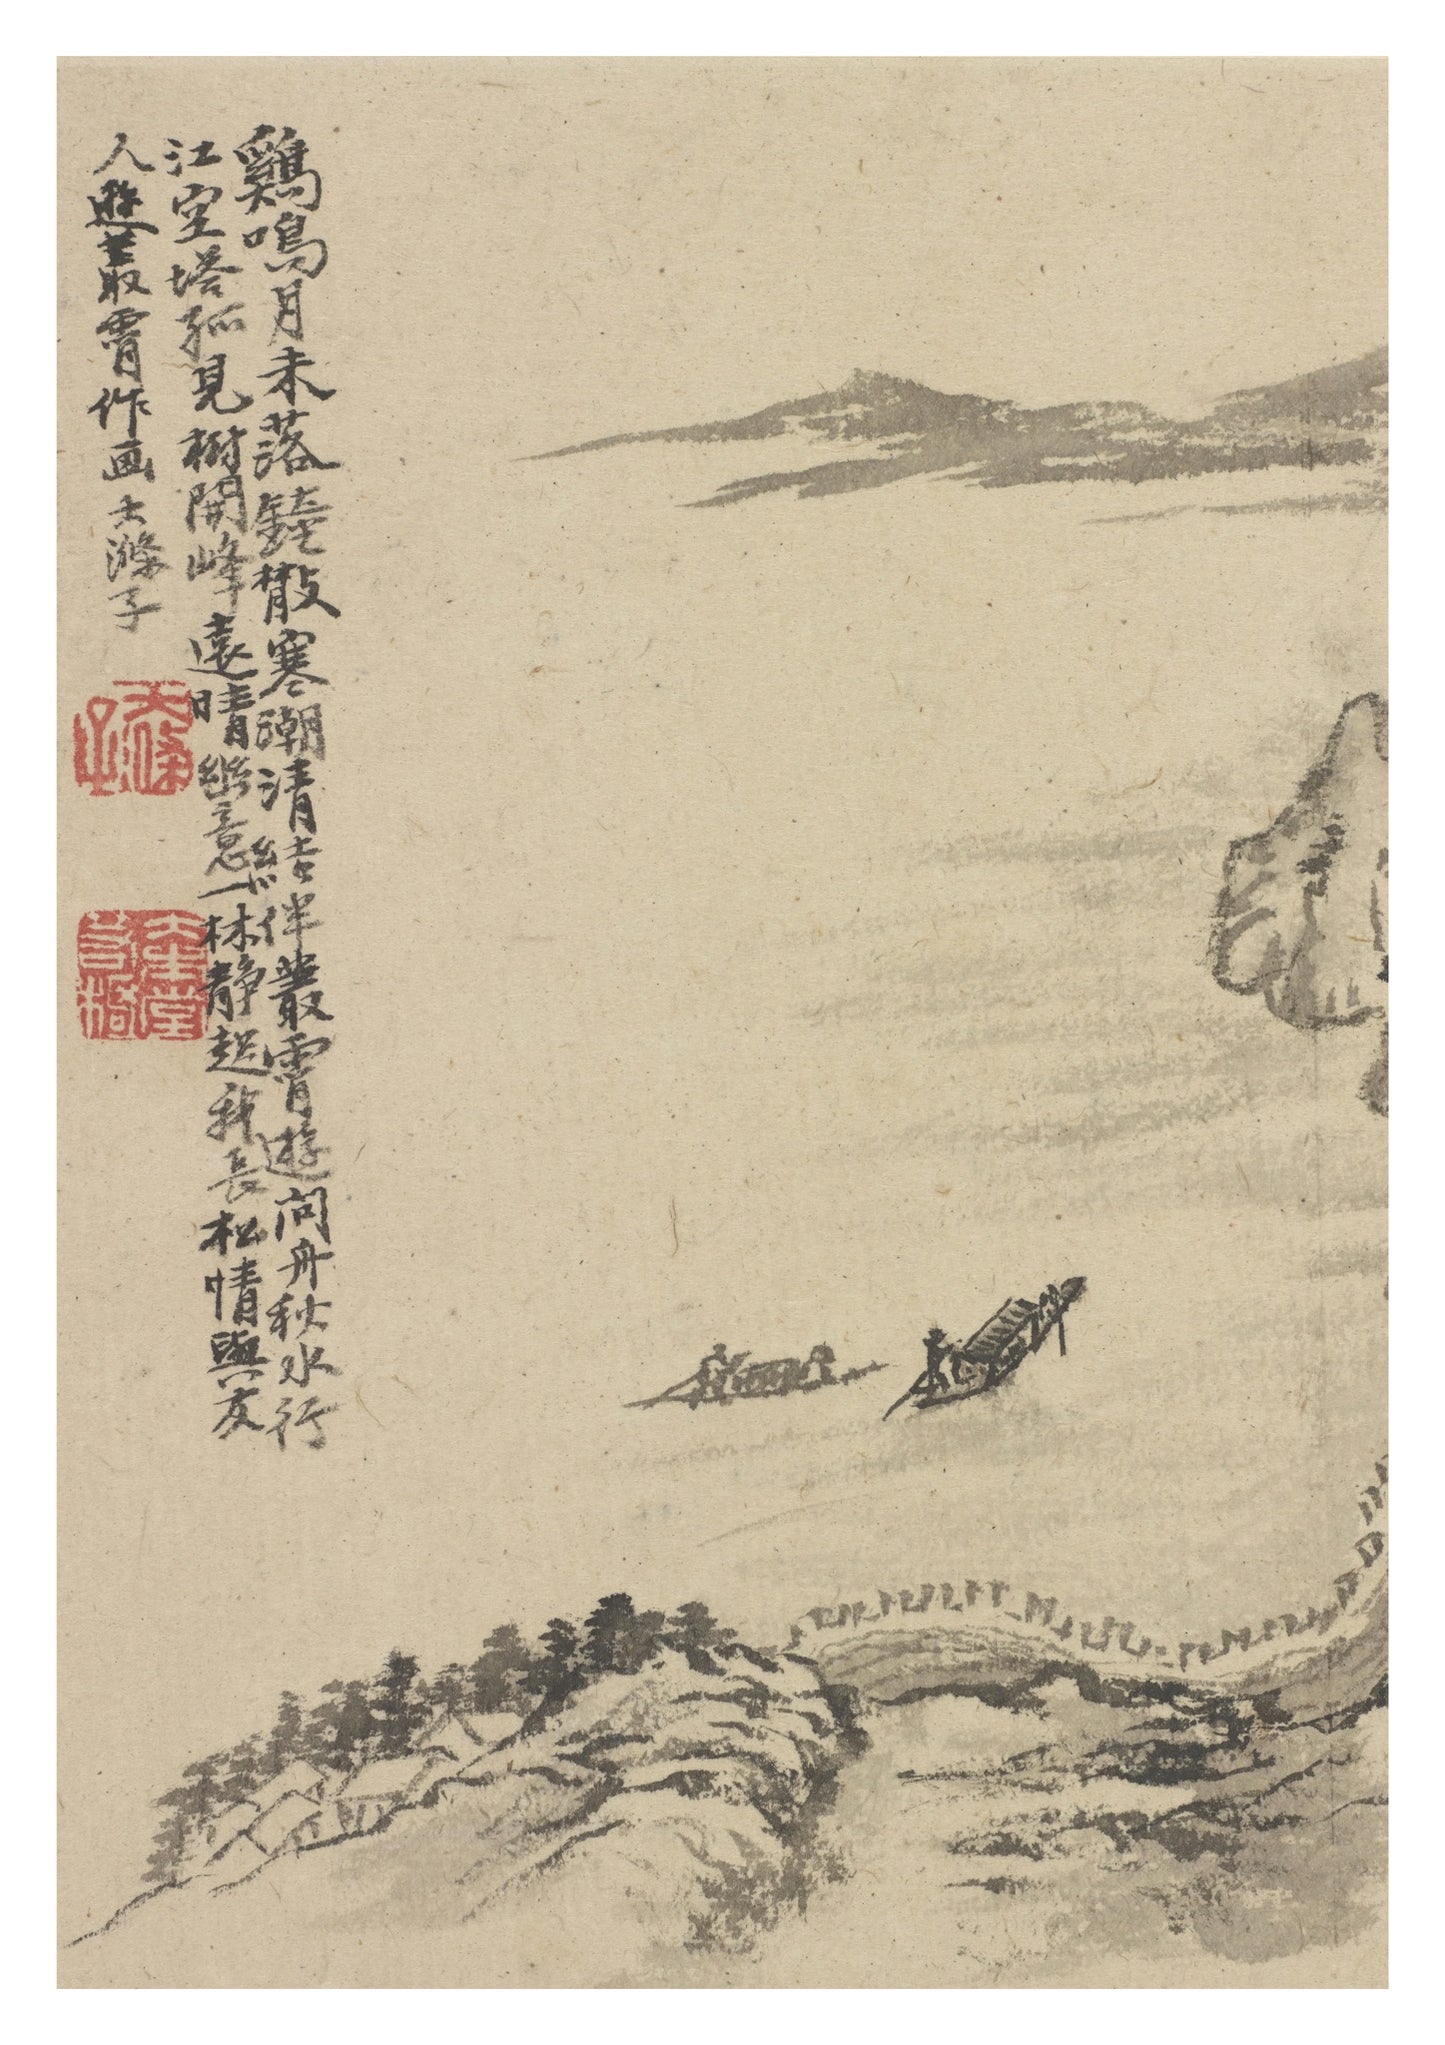 鷄鳴月未落鐘散寒潮清結伴叢霄遊問舟秋水行
江空塔孤見樹開峰遠晴幽意一林静起我長松情與友
人遊叢霄作画大滌子